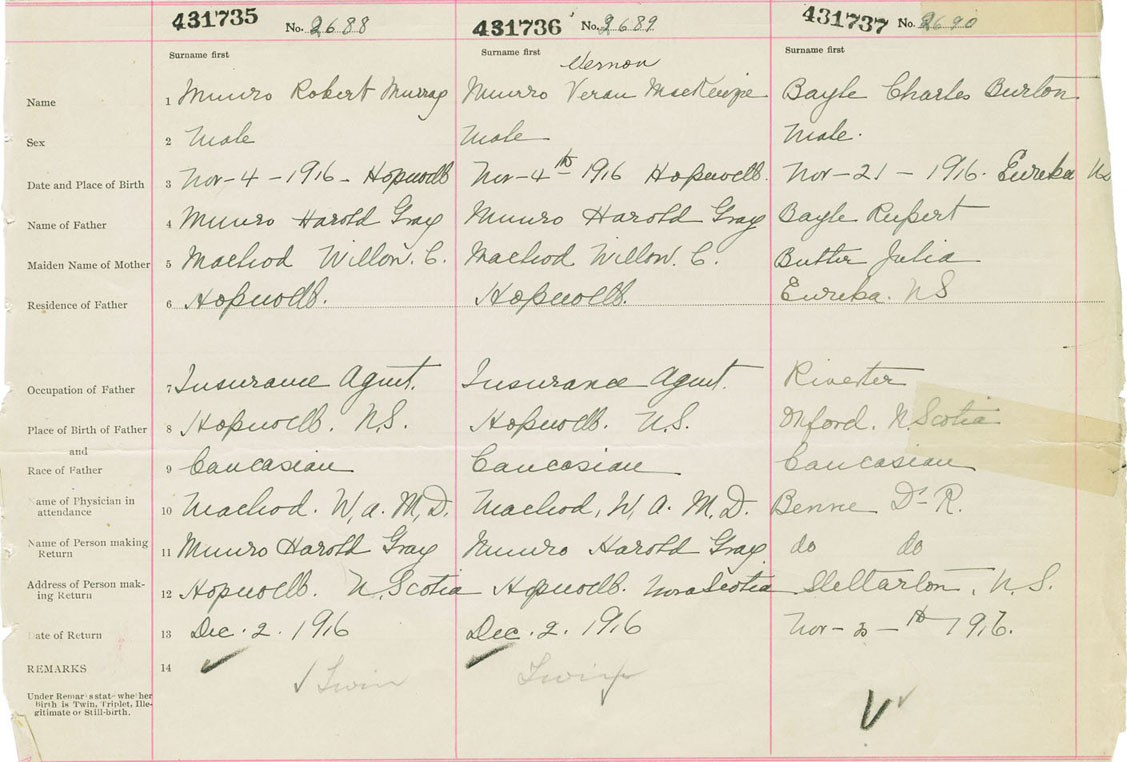 431735 No. 2688 431736 No. 2689 431737 No. 2690
Surname first Surname first Surname first
Vernon
Name 1 Munro Robert Murray Munro Veran MacKenzie Bayle Charles Burton
Sex 2 Male Male Male.
Date and Place of Birth 3 Nov-4-1916- Hopwell Nov-4th 1916 Hopwell. Nov-21-1916. Eureka Ns
Name of Father 4 Munro Harold Gray Munro Harold Gray Bayle Rupert
Maiden Name of Mother 5 Macleod Willow. C. Macleod Willow. C. Butler Julia
Residence of Father 6 Hopwell. Hopwell. Eureka. NS
Occupation of Father 7 Insurance Agent. Insurance Agent.
Place of Birth of Father 8 Hopwell. N.S. Hopwell. N.S. Oxford. N Scotia
and
Race of Father 9 Caucasian Caucasian Caucasian
Name of Physician in
attendance 10 Macleod. W, A. M, D. Macleod, W, A. M, D. Benne Dr R.
Name of Person making
Return 11 Munro Harold Gray Munro Harold Gray do do
Address of Person mak-
ing Return 12 Hopwell. N, Scotia Hopwell. Nova Scotia Stellarton, N, S.
Date of Return 13 Dec. 2. 1916 Dec. 2. 1916 Nov- th 1916.
REMARKS 14 Twin Twin
Under Remarks state whether
birth is Twin, Triplet, Ille-
gitimate or Still-birth.